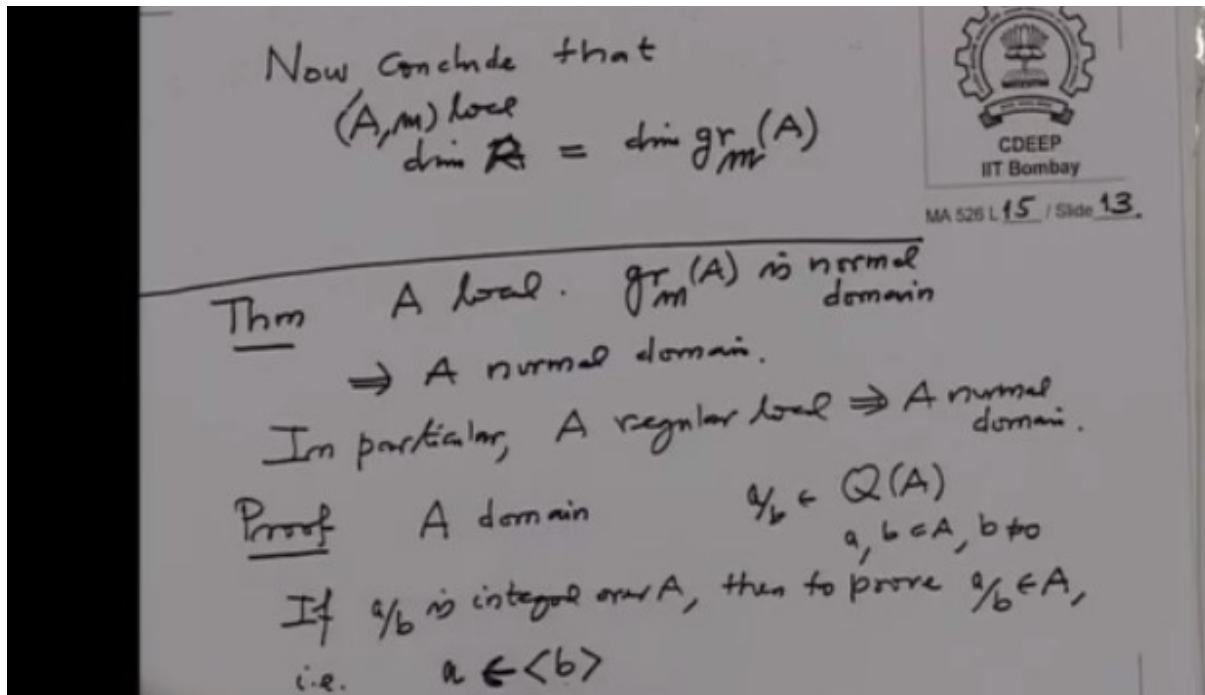 Now conclude that
(A,m) local
dim A = dim gr_m(A)
CDEEP
IIT Bombay
MA 526 L 15 / Slide 13.
Thm A local. gr_m(A) is normal
domain
⇒ A normal domain.
In particular, A regular local ⇒ A normal
domain.
Proof A domain a/b ∈ Q(A)
a, b ∈ A, b ≠ 0
If a/b is integral over A, then to prove a/b ∈ A,
i.e. a ∈ <b>